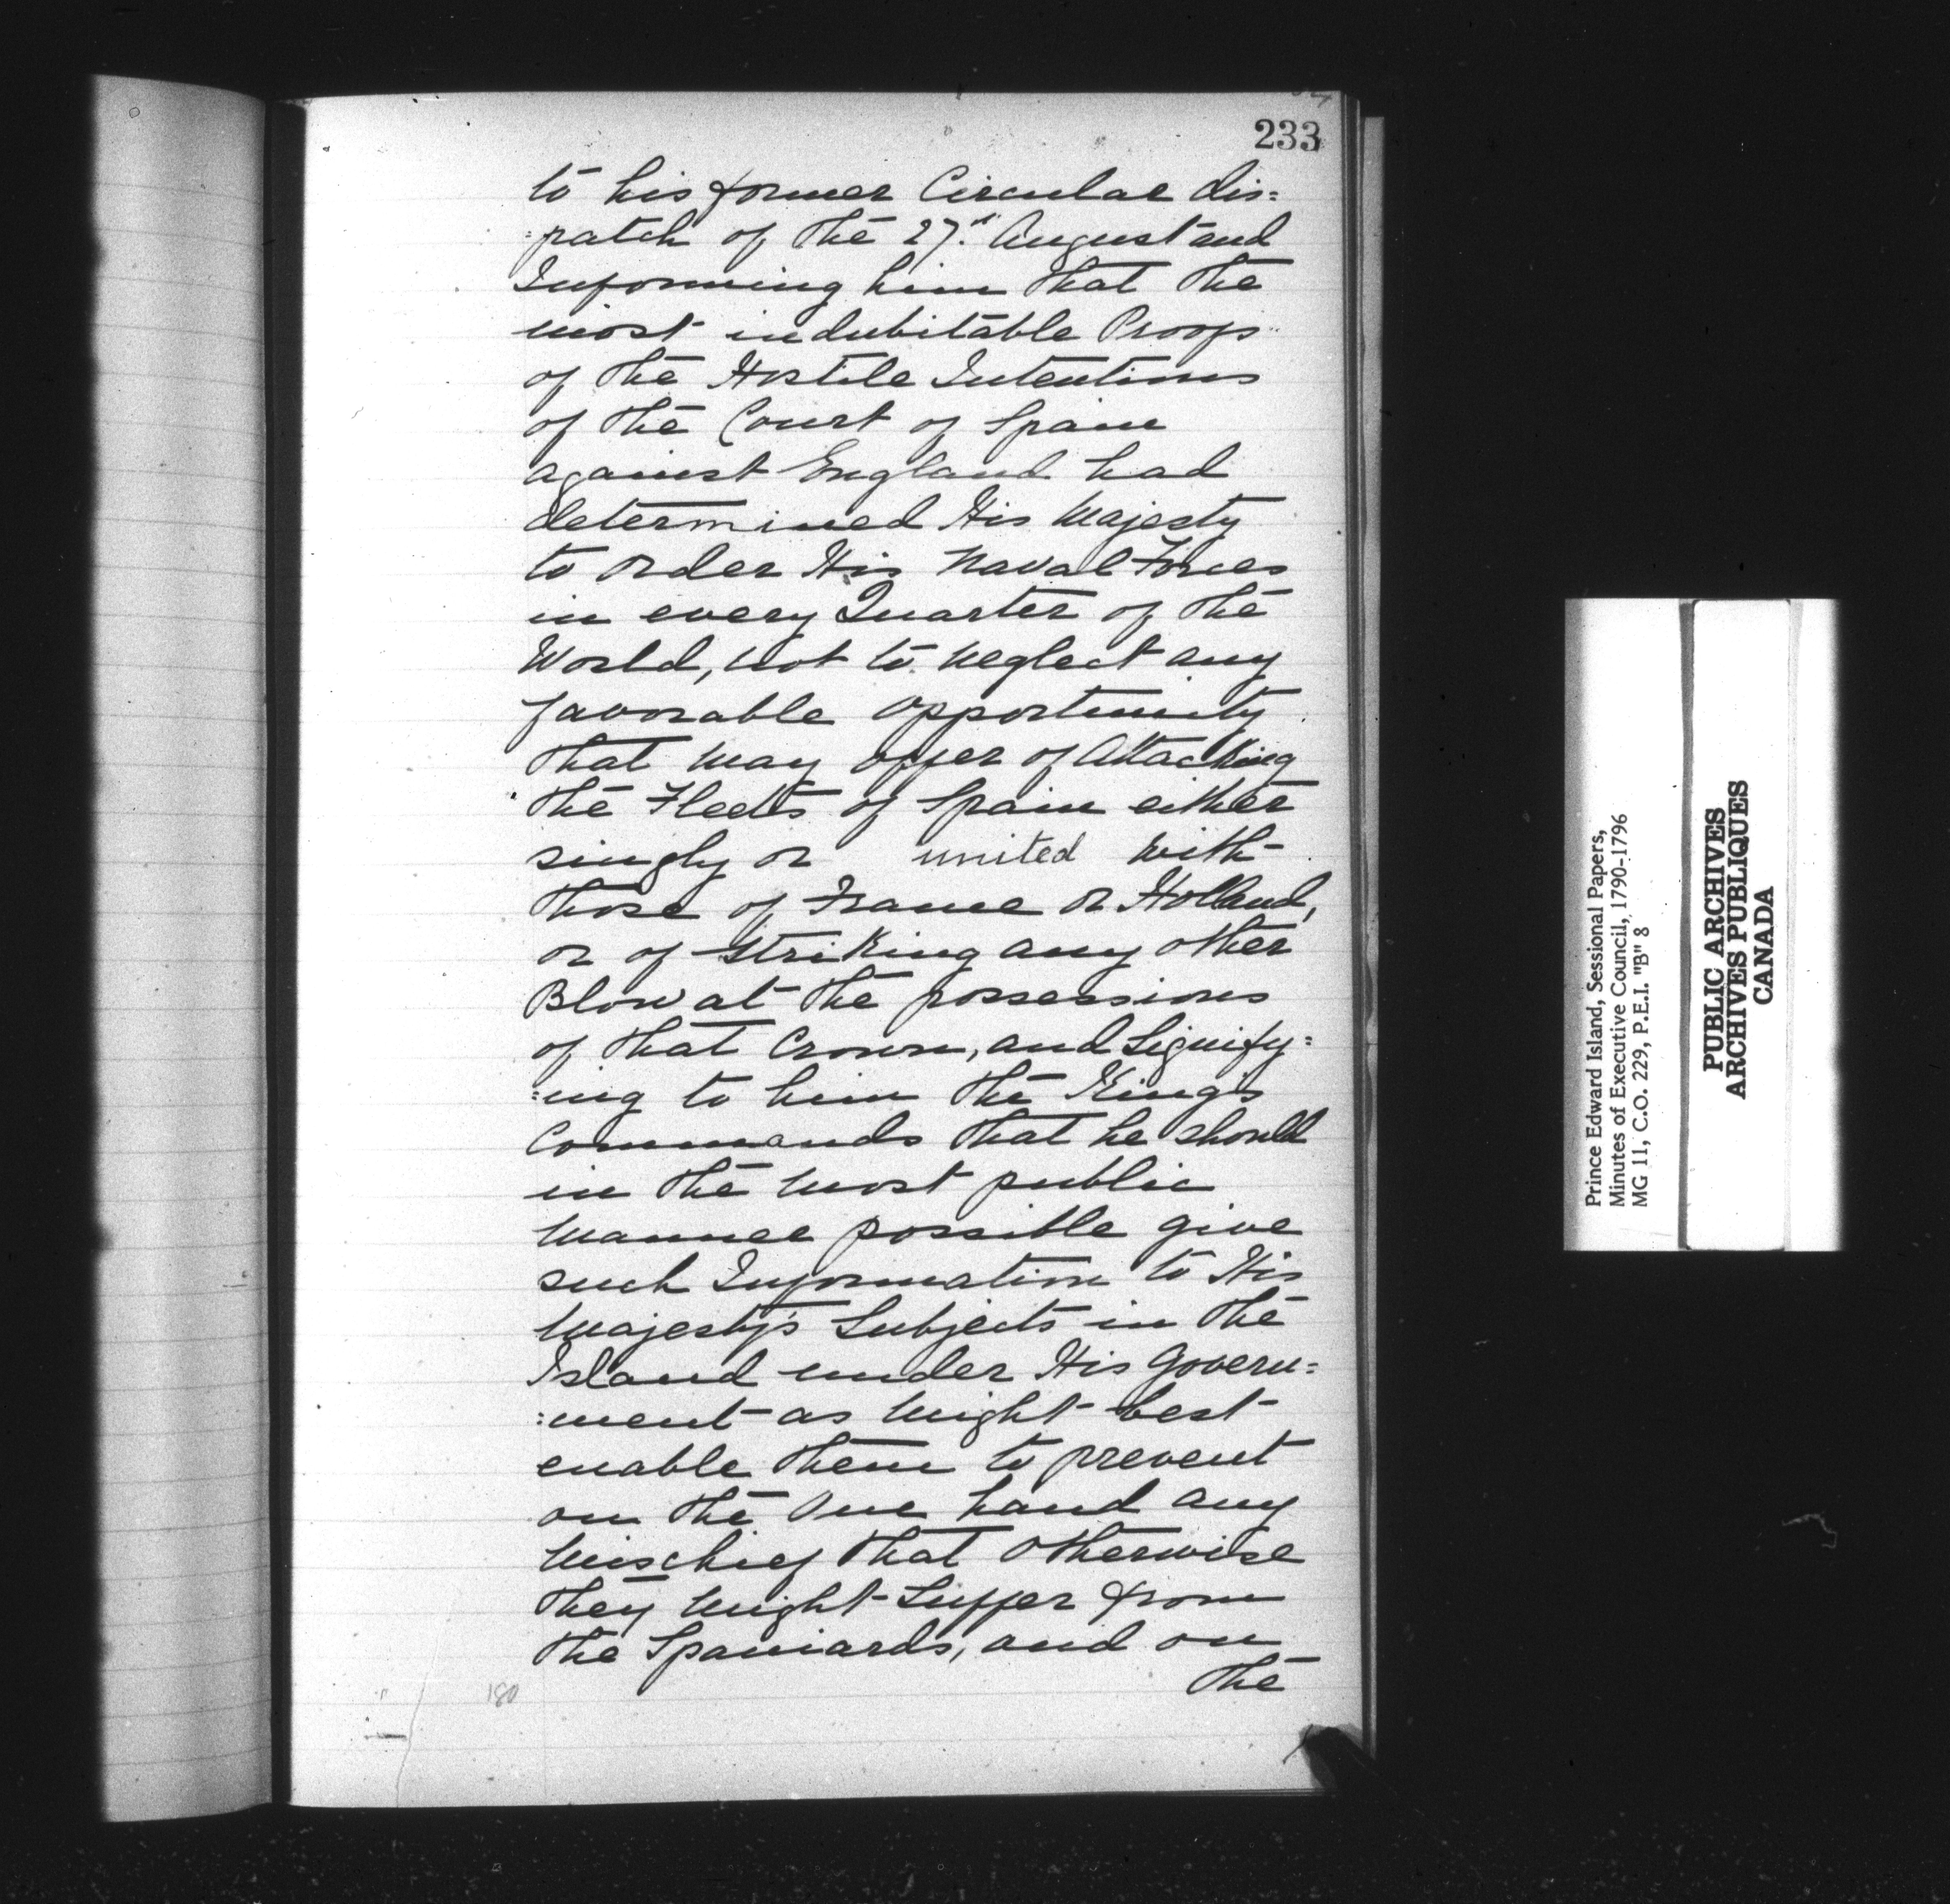 233
to his former Circular dis=
=patch of the 27.th August and
Informing him that the
most indubitable Proofs
of the Hostile Intentions
of the Court of Spain
against England had
determined His Majesty
to order His Naval Forces
in every Quarter of the
World, not to neglect any
favorable opportunity
that may offer of Attacking
the Fleets of Spain either
singly or united with
those of France or Holland,
or of striking any other
Blow at the possessions
of that Crown, and Signify=
=ing to him the King's
Commands that he should
in the most public
manner possible give
such Information to His
Majesty's Subjects in the
Island under His Govern=
=ment as might best
enable them to prevent
on the One hand any
Mischief that otherwise
they might Suffer from
the Spaniards, and on
the
180
Prince Edward Island, Sessional Papers,
Minutes of Executive Council, 1790-1796
MG 11, C.O. 229, P.E.I. "B" 8
PUBLIC ARCHIVES
ARCHIVES PUBLIQUES
CANADA